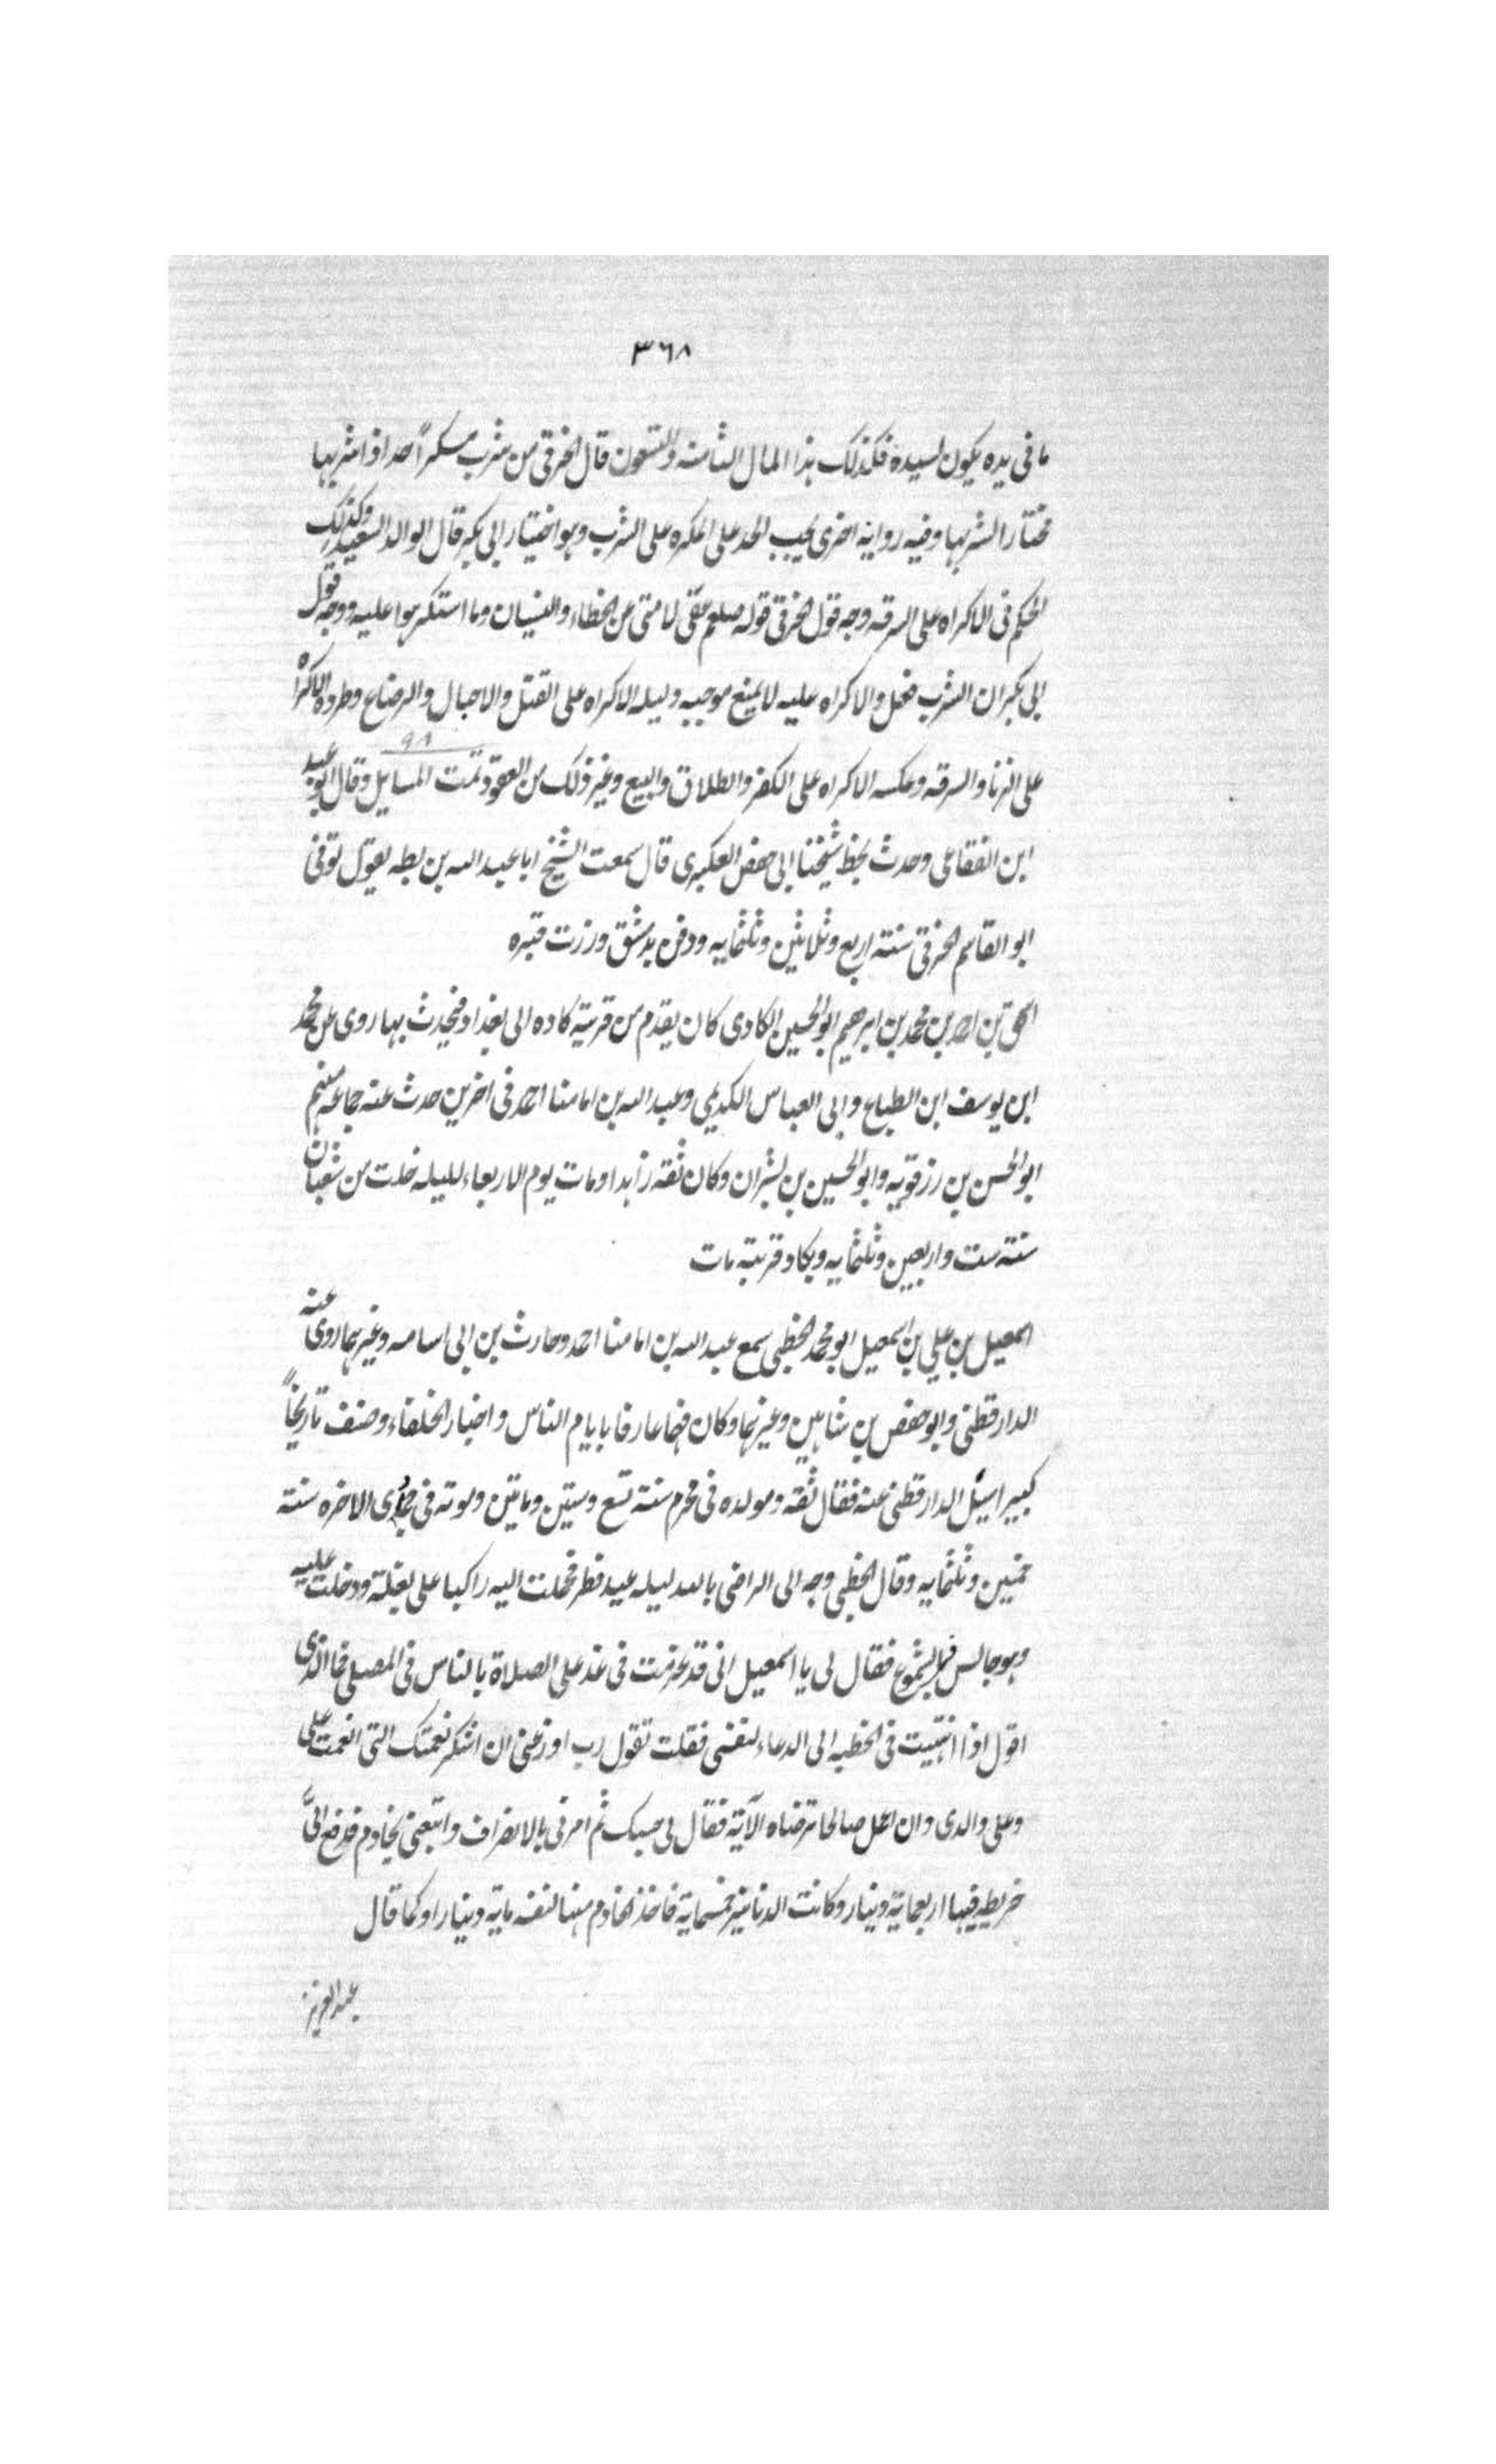 ٣٦٨
ما فى يده يكون لسيده فكذلك هذا المال الثامنه والتسعون قال الخرقى من شرب مسكراً حد اذا شربها
مختارا لشربها وفيه رواية اخرى يجب الحد على المكره على الشرب وهو اختيار ابى بكر قال الوالد السعيد وكذلك
الحكم فى الاكراه على السرقه وجه قول الخرقى قوله صلعم عفى لامتى عن الخطاء والنسيان وما استكرهوا عليه ووجه قول
ابى بكر ان الشرب فعل والاكراه عليه لا يمنع موجبه دليله الاكراه على القتل والاحبال والرضاع وطرده الاكراه
٩٨
على الزنا والسرقه وعكسه الاكراه على الكفر والطلاق والبيع وغير ذلك من العقود تمت المسايل وقال ابو عبد
ابن الفقاعى وحدث بخط شيخنا ابى حفص العكبرى قال سمعت الشيخ ابا عبد الله بن بطه يقول توفى
ابو القاسم الخرقى سنة اربع وثلاثين وثلثمايه ودفن بدمشق وزرت قبره
اسحق بن احمد بن محمد بن ابرهيم ابو الحسين الكادى كان يقدم من قرية كاده الى بغداد فيحدث بها روى عن محمد
ابن يوسف ابن الطباع وابى العباس الكديمي وعبد الله بن امامنا احمد فى اخرين حدث عنه جماعه منهم
ابو الحسن بن رزقويه وابو الحسين بن بشران وكان ثقه زاهدا ومات يوم الاربعاء لليله خلت من شعبان
سنة ست واربعين وثلثمايه وبكاد قريته مات
اسمعيل بن علي بن اسمعيل ابو محمد الخطبى سمع عبد الله بن امامنا احمد وحارث بن ابى اسامه وغيرهما روى عنه
الدارقطنى وابو حفص بن شاهين وغيرهما وكان فهما عارفا بايام الناس واخبار الخلفاء وصنف تاريخاً
كبيرا سئل الدارقطنى عنه فقال ثقه ومولده فى محرم سنة تسع وستين ومايتين وموته فى جمادى الاخره سنة
خمسين وثلثمايه وقال الخطبى وجه الى الراضى بالله ليله عيد فطر فحملت اليه راكبا على بغلة ودخلت عليه
وهو جالس فى الشموع فقال لى يا اسمعيل انى قد عزمت فى غد على الصلاة بالناس فى المصلى فما الذى
اقول اذا انتهيت فى الخطبه الى الدعاء لنفسى فقلت تقول رب اوزعنى ان اشكر نعمتك التى انعمت على
وعلى والدى وان اعمل صالحا ترضاه الآية فقال لى حسبك ثم امرنى بالانصراف واتبعنى بخادم فدفع الىّ
خريطه فيها اربعماية دينار وكانت الدنانير خمسماية فاخذ الخادم منها لنفسه ماية دينار او كما قال
عبد العزيز